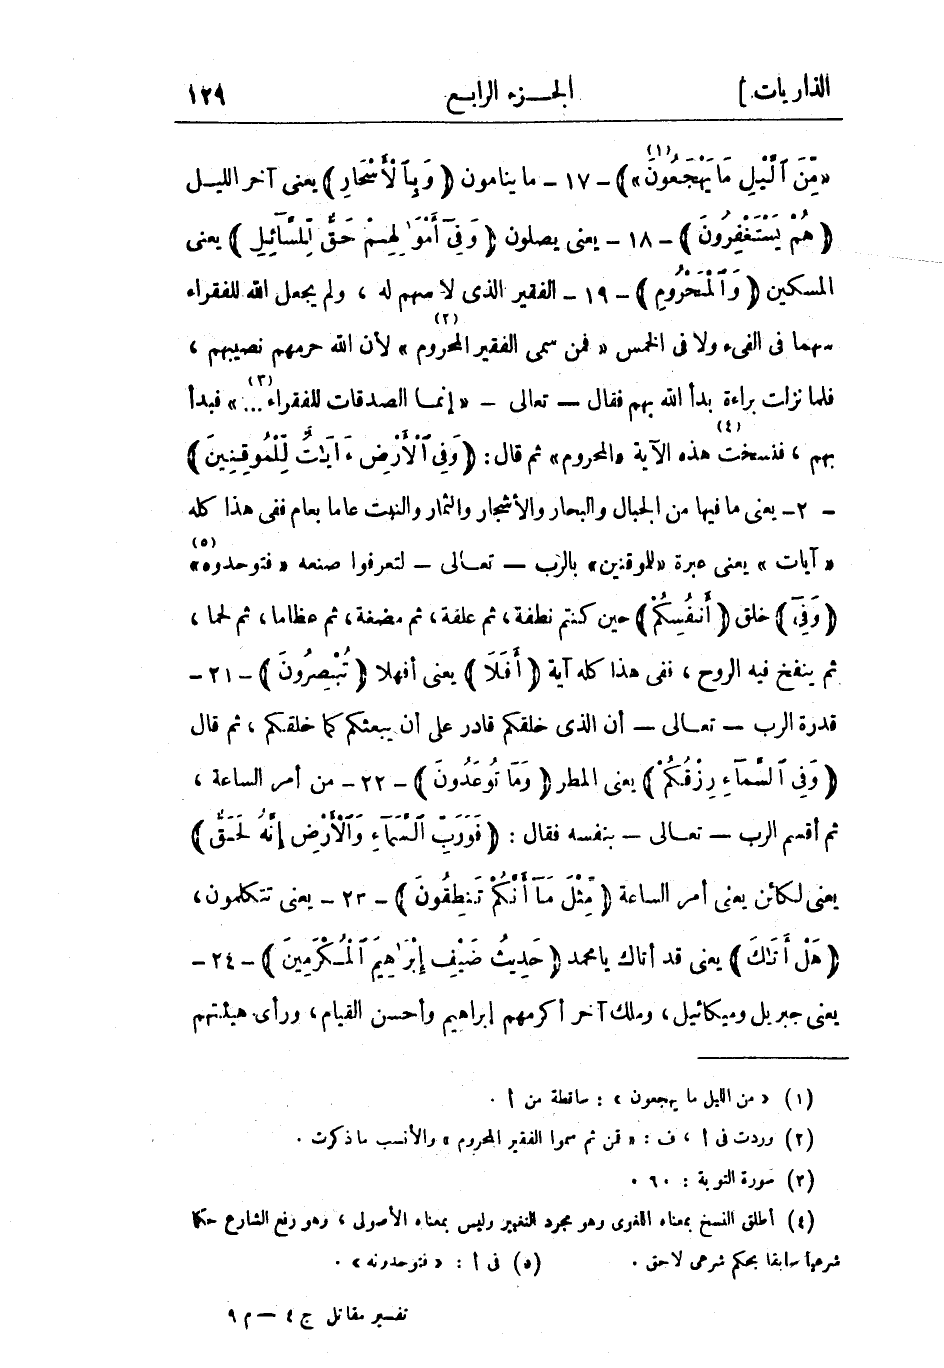 الذاريات ] الجـــزء الرابـع ١٢٩
«مِّنَ ٱلَّيْلِ مَا يَهْجَعُونَ(١)») ــ ١٧ ــ ما ينامون (وَبِٱلْأَسْحَارِ) يعنى آخر الليــل
(هُمْ يَسْتَغْفِرُونَ) ــ ١٨ ــ يعنى يصلون (وَفِىٓ أَمْوَٰلِهِـمْ حَقٌّ لِّلسَّآئِلِ) يعنى
المسكين (وَٱلْمَحْرُومِ) ــ ١٩ ــ الفقير الذى لا سهم له ، ولم يجعل الله للفقراء
سهما فى الفىء ولا فى الخمس « فمن سمى الفقير المحروم(٢) » لأن الله حرمهم نصيبهم ،
فلما نزلت براءة بدأ الله بهم فقال ــ تعالى ــ « إنمـا الصدقات للفقراء(٣) ... » فبدأ
بهم ، فنسخت(٤) هذه الآية «المحروم» ثم قال : (وَفِى ٱلْأَرْضِ ءَايَـٰتٌ لِّلْمُوقِنِينَ)
ــ ٢٠ ــ يعنى ما فيها من الجبال والبحار والأشجار والثمار والنبت عاما بعام ففى هذا كله
« آيات » يعنى عبرة «للموقنين» بالرب ــ تعـالى ــ لتعرفوا صنعه « فتوحدوه(٥)»
(وَفِىٓ) خلق (أَنفُسِكُمْ) حين كنتم نطفة ، ثم علقة ، ثم مضغة ، ثم عظاما ، ثم لحما ،
ثم ينفخ فيه الروح ، ففى هذا كله آية (أَفَلَا) يعنى أفهلا (تُبْصِرُونَ) ــ ٢١ ــ
قدرة الرب ــ تعـالى ــ أن الذى خلقكم قادر على أن يبعثكم كما خلقكم ، ثم قال
(وَفِى ٱلسَّمَآءِ رِزْقُكُمْ) يعنى المطر (وَمَا تُوعَدُونَ) ــ ٢٢ ــ من أمر الساعة ،
ثم أقسم الرب ــ تعـالى ــ بنفسه فقال : (فَوَرَبِّ ٱلسَّمَآءِ وَٱلْأَرْضِ إِنَّهُۥ لَحَقٌّ)
يعنى لكائن يعنى أمر الساعة (مِّثْلَ مَآ أَنَّكُمْ تَنطِقُونَ) ــ ٢٣ ــ يعنى تتكلمون ،
(هَلْ أَتَىٰكَ) يعنى قد أتاك يا محمد (حَدِيثُ ضَيْفِ إِبْرَٰهِيمَ ٱلْمُـكْرَمِينَ) ــ ٢٤ ــ
يعنى جبريل وميكائيل ، وملك آخر أكرمهم إبراهيم وأحسن القيام ، ورأى هيئتهم
(١) « من الليل ما يهجعون » : ساقطة من أ .
(٢) وردت فى أ ، ف : « فن ثم سموا الفقير المحروم » والأنسب ما ذكرت .
(٣) سورة التوبة : ٦٠ .
(٤) أطلق النسخ بمعناه اللغوى وهو مجرد التغيير وليس بمعناه الأصولى ، وهو رفع الشارع حكما
شرعيا سابقا بحكم شرعى لاحق . (٥) فى أ : « فتوحدونه » .
تفسير مقاتل ج ٤ ــ م ٩